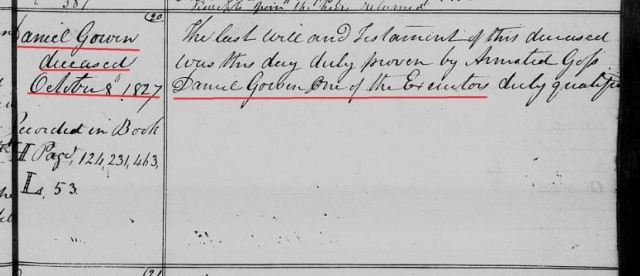 381
(20)
Daniel Gowen
deceased
October 8th 1827
Recorded in Book
H Page, 124, 231, 463,
I, 53.
The last Will and Testament of this deceased
was this day duly proven by Armsted Goss
Daniel Gowen One of the Executors duly qualified
(21